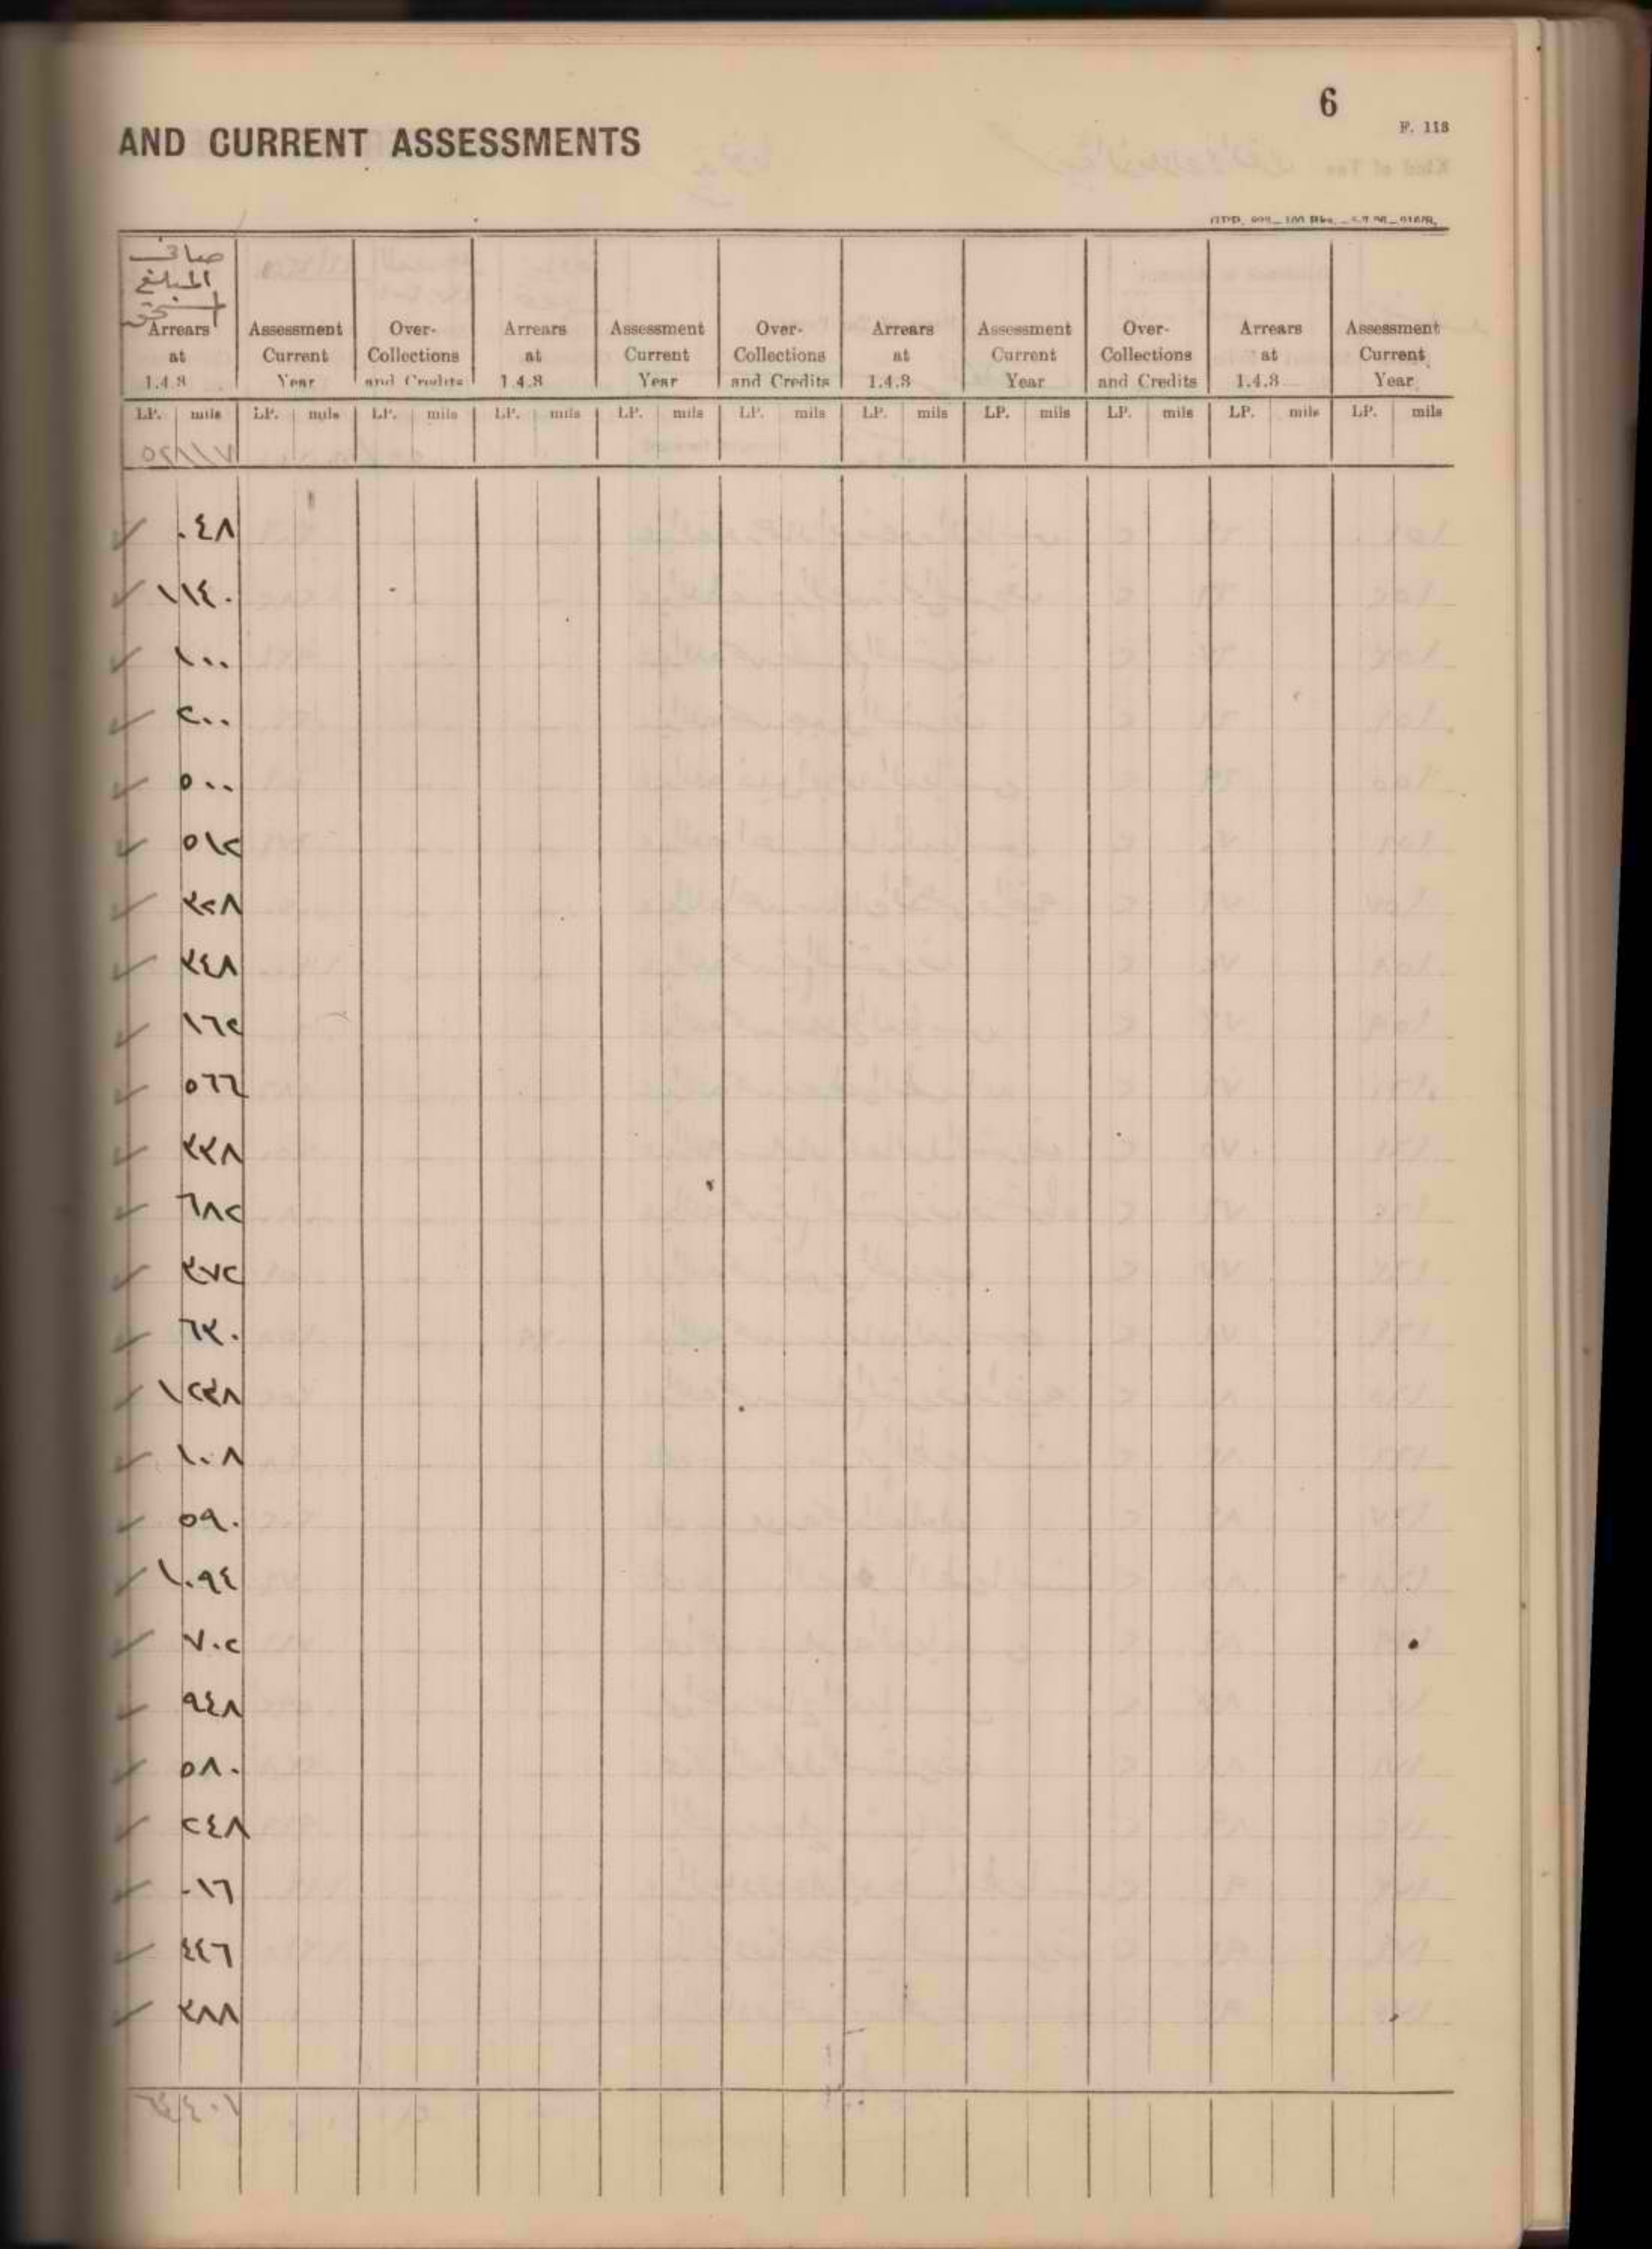 6
F. 118
AND CURRENT ASSESSMENTS
صافي
المبلغ
Arrears at 1.4.3 Assessment Current Year Over-Collections and Credits Arrears at 1.4.3 Assessment Current Year Over-Collections and Credits Arrears at 1.4.3 Assessment Current Year Over-Collections and Credits Arrears at 1.4.3 Assessment Current Year
LP. mils LP. mils LP. mils LP. mils LP. mils LP. mils LP. mils LP. mils LP. mils LP. mils LP. mils
٠٤٨
١١٤٠
١٠٠
٢٠٠
٥٠٠
٥١٢
٣٢٨
٣٤٨
١٦٢
٥٦٦
٣٣٨
٦٨٢
٣٧٢
٦٣٠
١٢٣٨
١٠٨
٥٩٠
١٠٩٤
٧٠٢
٩٤٨
٥٨٠
٢٤٨
٠١٦
٤٤٦
٣٨٨